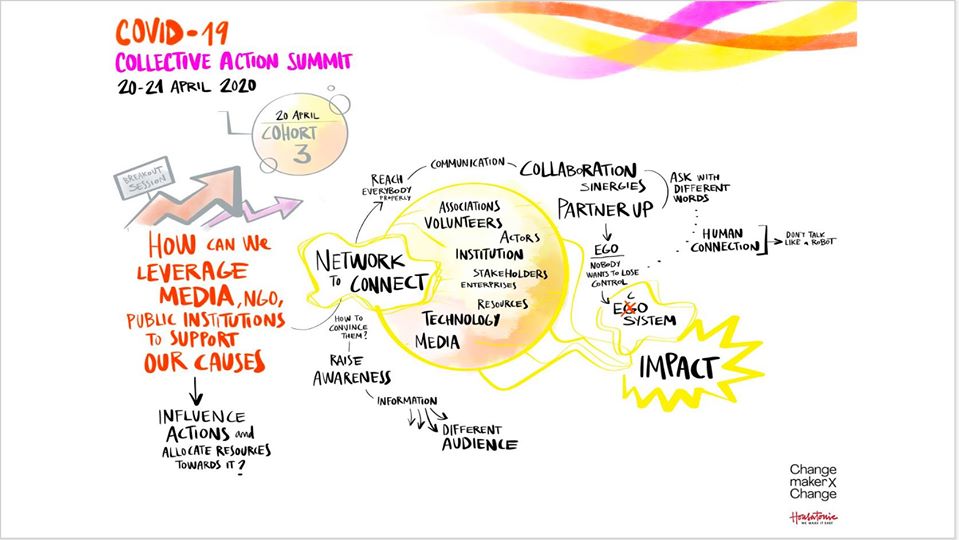 COVID-19
COLLECTIVE ACTION SUMMIT
20-21 APRIL 2020
20 APRIL
COHORT
3
BREAKOUT
SESSION
HOW CAN WE
LEVERAGE
MEDIA, NGO,
PUBLIC INSTITUTIONS
TO SUPPORT
OUR CAUSES
INFLUENCE
ACTIONS and
ALLOCATE RESOURCES
TOWARDS IT?
NETWORK
TO CONNECT
REACH
EVERYBODY
PROPERLY
COMMUNICATION
COLLABORATION
SINERGIES
PARTNER UP
ASK WITH
DIFFERENT
WORDS
HUMAN
CONNECTION
DON'T TALK
LIKE A ROBOT
EGO
NOBODY
WANTS TO LOSE
CONTROL
C
EGO
SYSTEM
IMPACT
ASSOCIATIONS
VOLUNTEERS
ACTORS
INSTITUTION
STAKEHOLDERS
ENTERPRISES
RESOURCES
TECHNOLOGY
MEDIA
HOW TO
CONVINCE
THEM?
RAISE
AWARENESS
INFORMATION
DIFFERENT
AUDIENCE
Change
makerX
Change
Housatonic
WE MAKE IT EASY